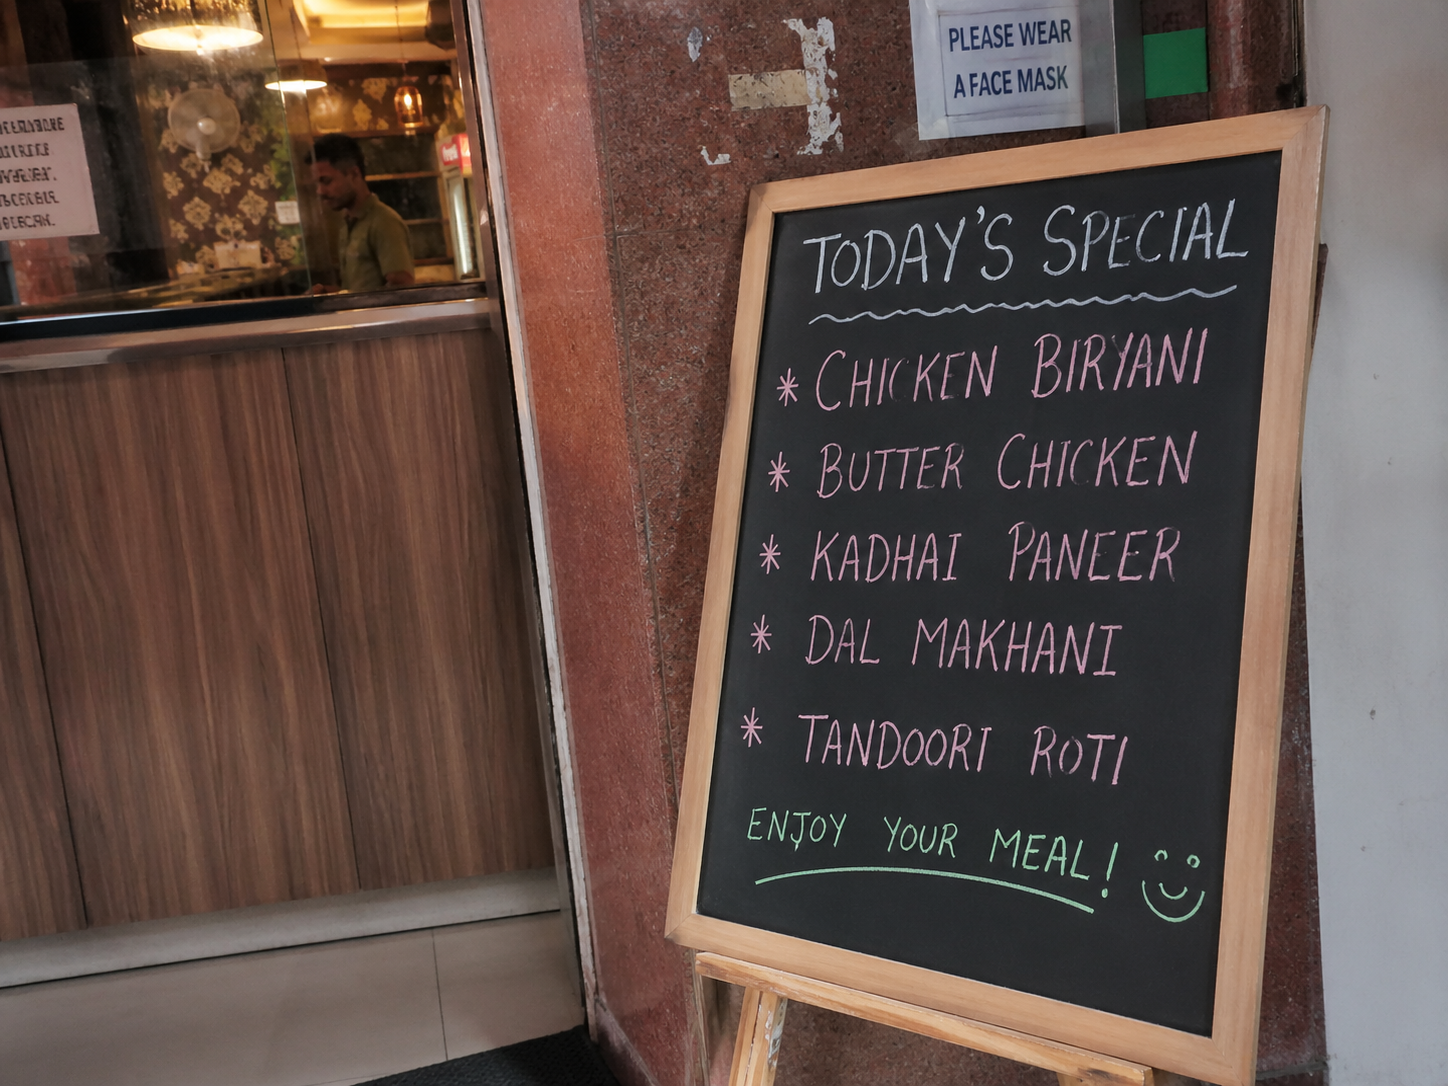 PLEASE WEAR
A FACE MASK
TODAY'S SPECIAL
* CHICKEN BIRYANI
* BUTTER CHICKEN
* KADHAI PANEER
* DAL MAKHANI
* TANDOORI ROTI
ENJOY YOUR MEAL!